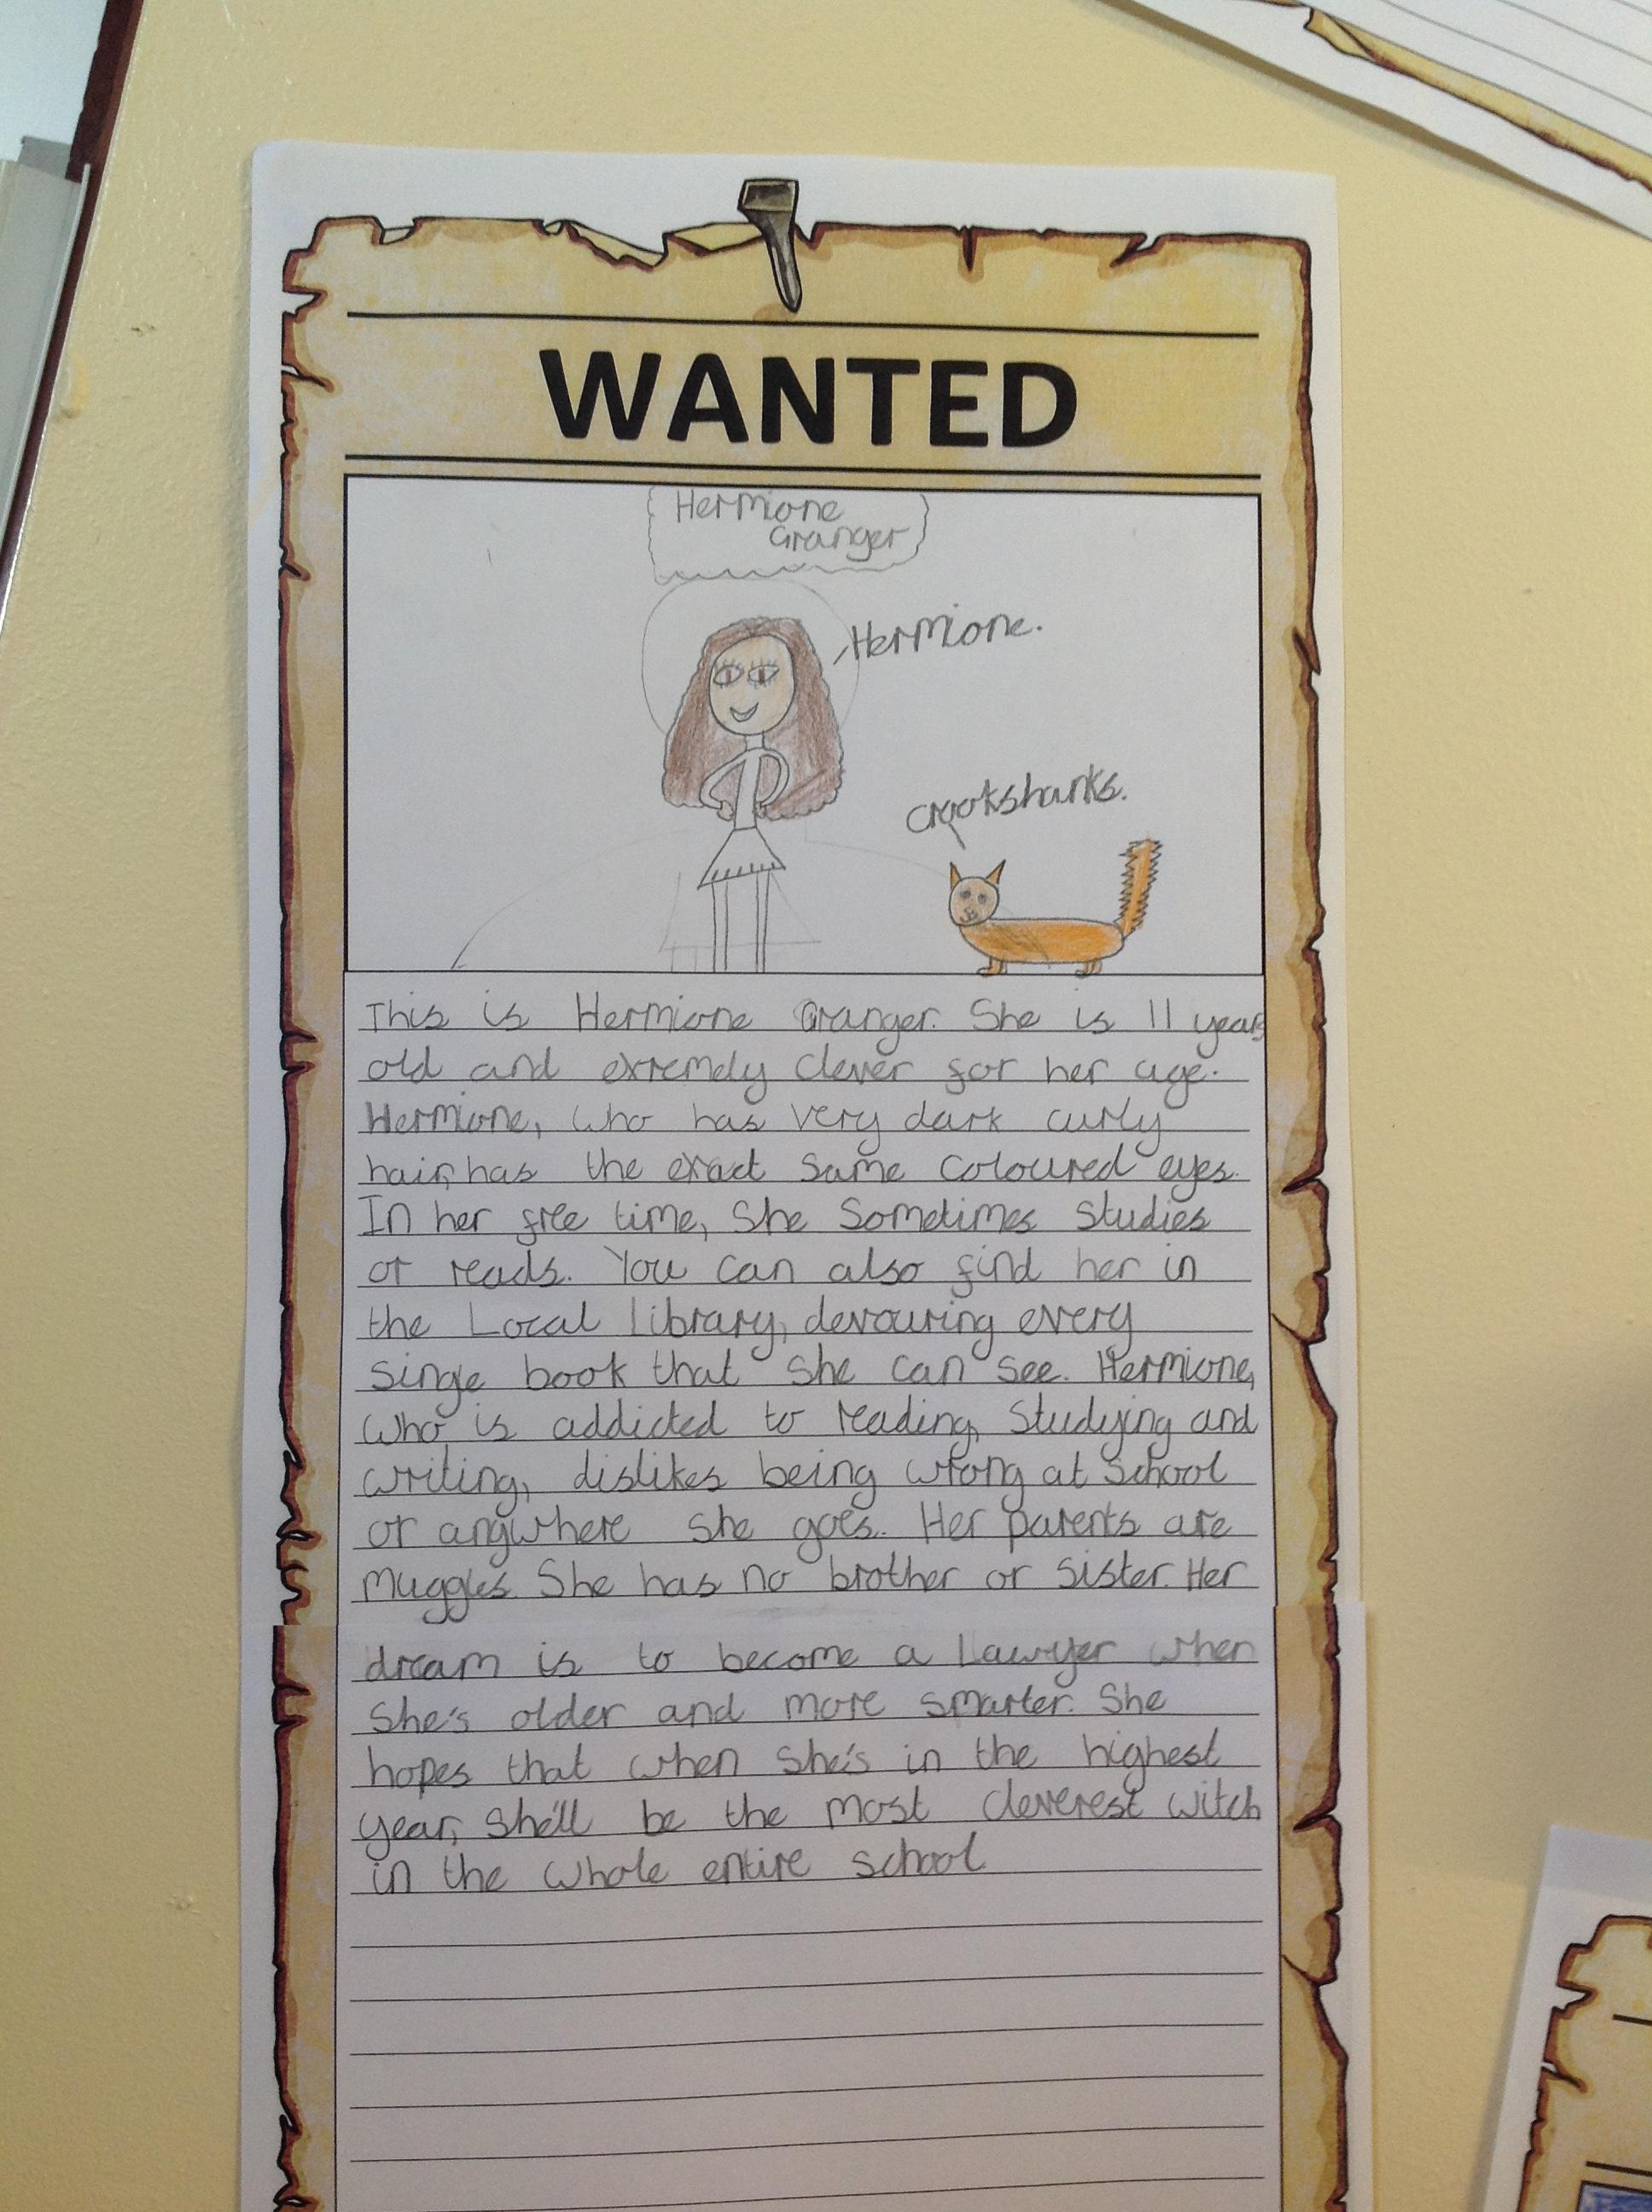 WANTED
Hermione
Granger
Hermione.
Crookshanks.
This is Hermione Granger. She is 11 years
old and extremely clever for her age.
Hermione, who has very dark curly
hair, has the exact same coloured eyes.
In her free time, she sometimes studies
or reads. You can also find her in
the Local library, devouring every
singe book that she can see. Hermione,
who is addicted to reading, studying and
writing, dislikes being wrong at school
or anywhere she goes. Her parents are
muggles. She has no brother or sister. Her
dream is to become a Lawyer when
She's older and more smarter. She
hopes that when she's in the highest
year, she'll be the most cleverest witch
in the whole entire school